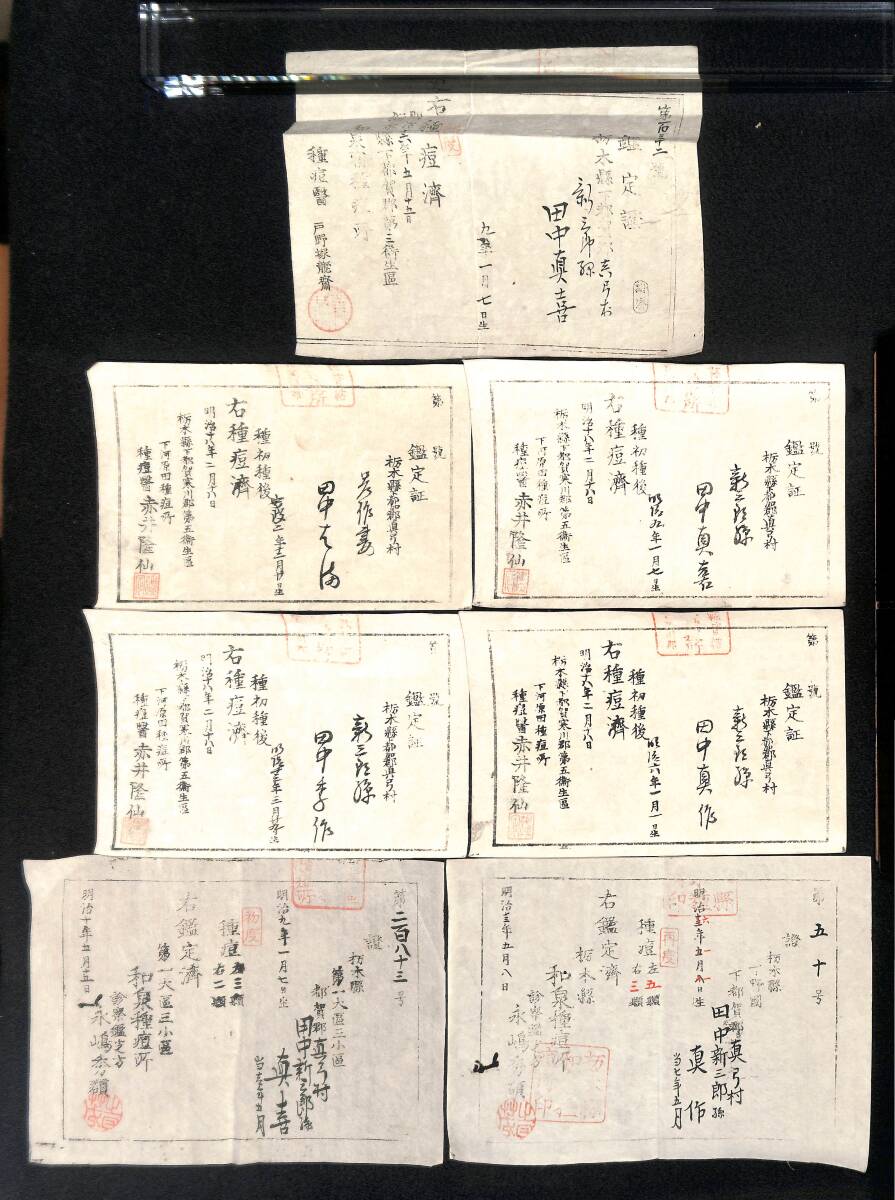 第百三十二號
鑑定証
新三郎孫
田中真喜
九年一月七日生
右種痘濟
種痘醫 戸野塚龍齋
第 號
鑑定証
栃木縣下都賀郡真弓村
新三郎孫
田中真喜
明治九年一月七日生
種初種後
右種痘濟
明治十八年二月十八日
栃木縣下都賀寒川郡第五衞生區
下河原田種痘所
種痘醫 赤井隆仙
第 號
鑑定証
栃木縣下都賀郡真弓村
田中
種初種後
右種痘濟
明治十八年二月十八日
栃木縣下都賀寒川郡第五衞生區
下河原田種痘所
種痘醫 赤井隆仙
第 號
鑑定証
栃木縣下都賀郡真弓村
新三郎孫
田中真作
明治六年一月一日生
種初種後
右種痘濟
明治十八年二月十八日
栃木縣下都賀寒川郡第五衞生區
下河原田種痘所
種痘醫 赤井隆仙
第 號
鑑定証
栃木縣下都賀郡真弓村
新三郎孫
田中季作
種初種後
右種痘濟
明治十八年二月十八日
栃木縣下都賀寒川郡第五衞生區
下河原田種痘所
種痘醫 赤井隆仙
第五十号
證
栃木縣
下野國
下都賀郡真弓村
田中新三郎孫
真作
當七年五月
再度
種痘 左五顆 右三顆
右鑑定濟
栃木縣
和泉種痘所
診察鑑定方
永嶋
明治十三年五月八日
第二百八十三号
證
栃木縣
第一大區三小區
都賀郡真弓村
田中新三郎孫
真喜
明治九年一月七日生
初度
種痘 左三顆 右二顆
右鑑定濟
第一大區三小區
和泉種痘所
診察鑑定方
永嶋
明治十年五月十五日